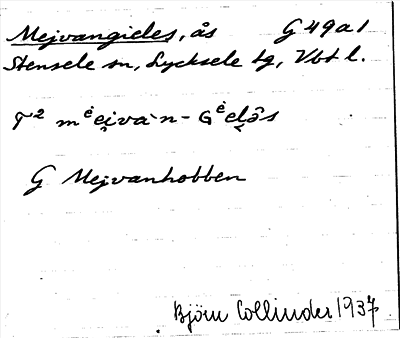 Mejvangieles, ås G 49 a 1
Stensele sn, Lycksele lg, Vbt l.
G Mejvanhobben
Björn Collinder 1937